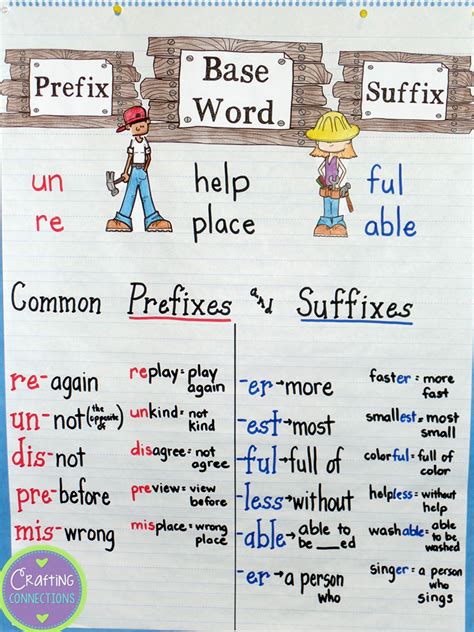 Prefix
Base
Word
Suffix
un
help
ful
re
place
able
Common Prefixes and Suffixes
re-again
replay = play
again
un-not (the opposite of)
unkind = not
kind
dis-not
disagree = not
agree
pre-before
preview = view
before
mis-wrong
misplace = wrong
place
-er→more
faster = more
fast
-est→most
smallest = most
small
-ful→full of
colorful = full of
color
-less→without
helpless = without
help
-able→able to
be ___ed
washable = able
to be
washed
-er→a person
who
singer = a person
who
sings
Crafting
Connections